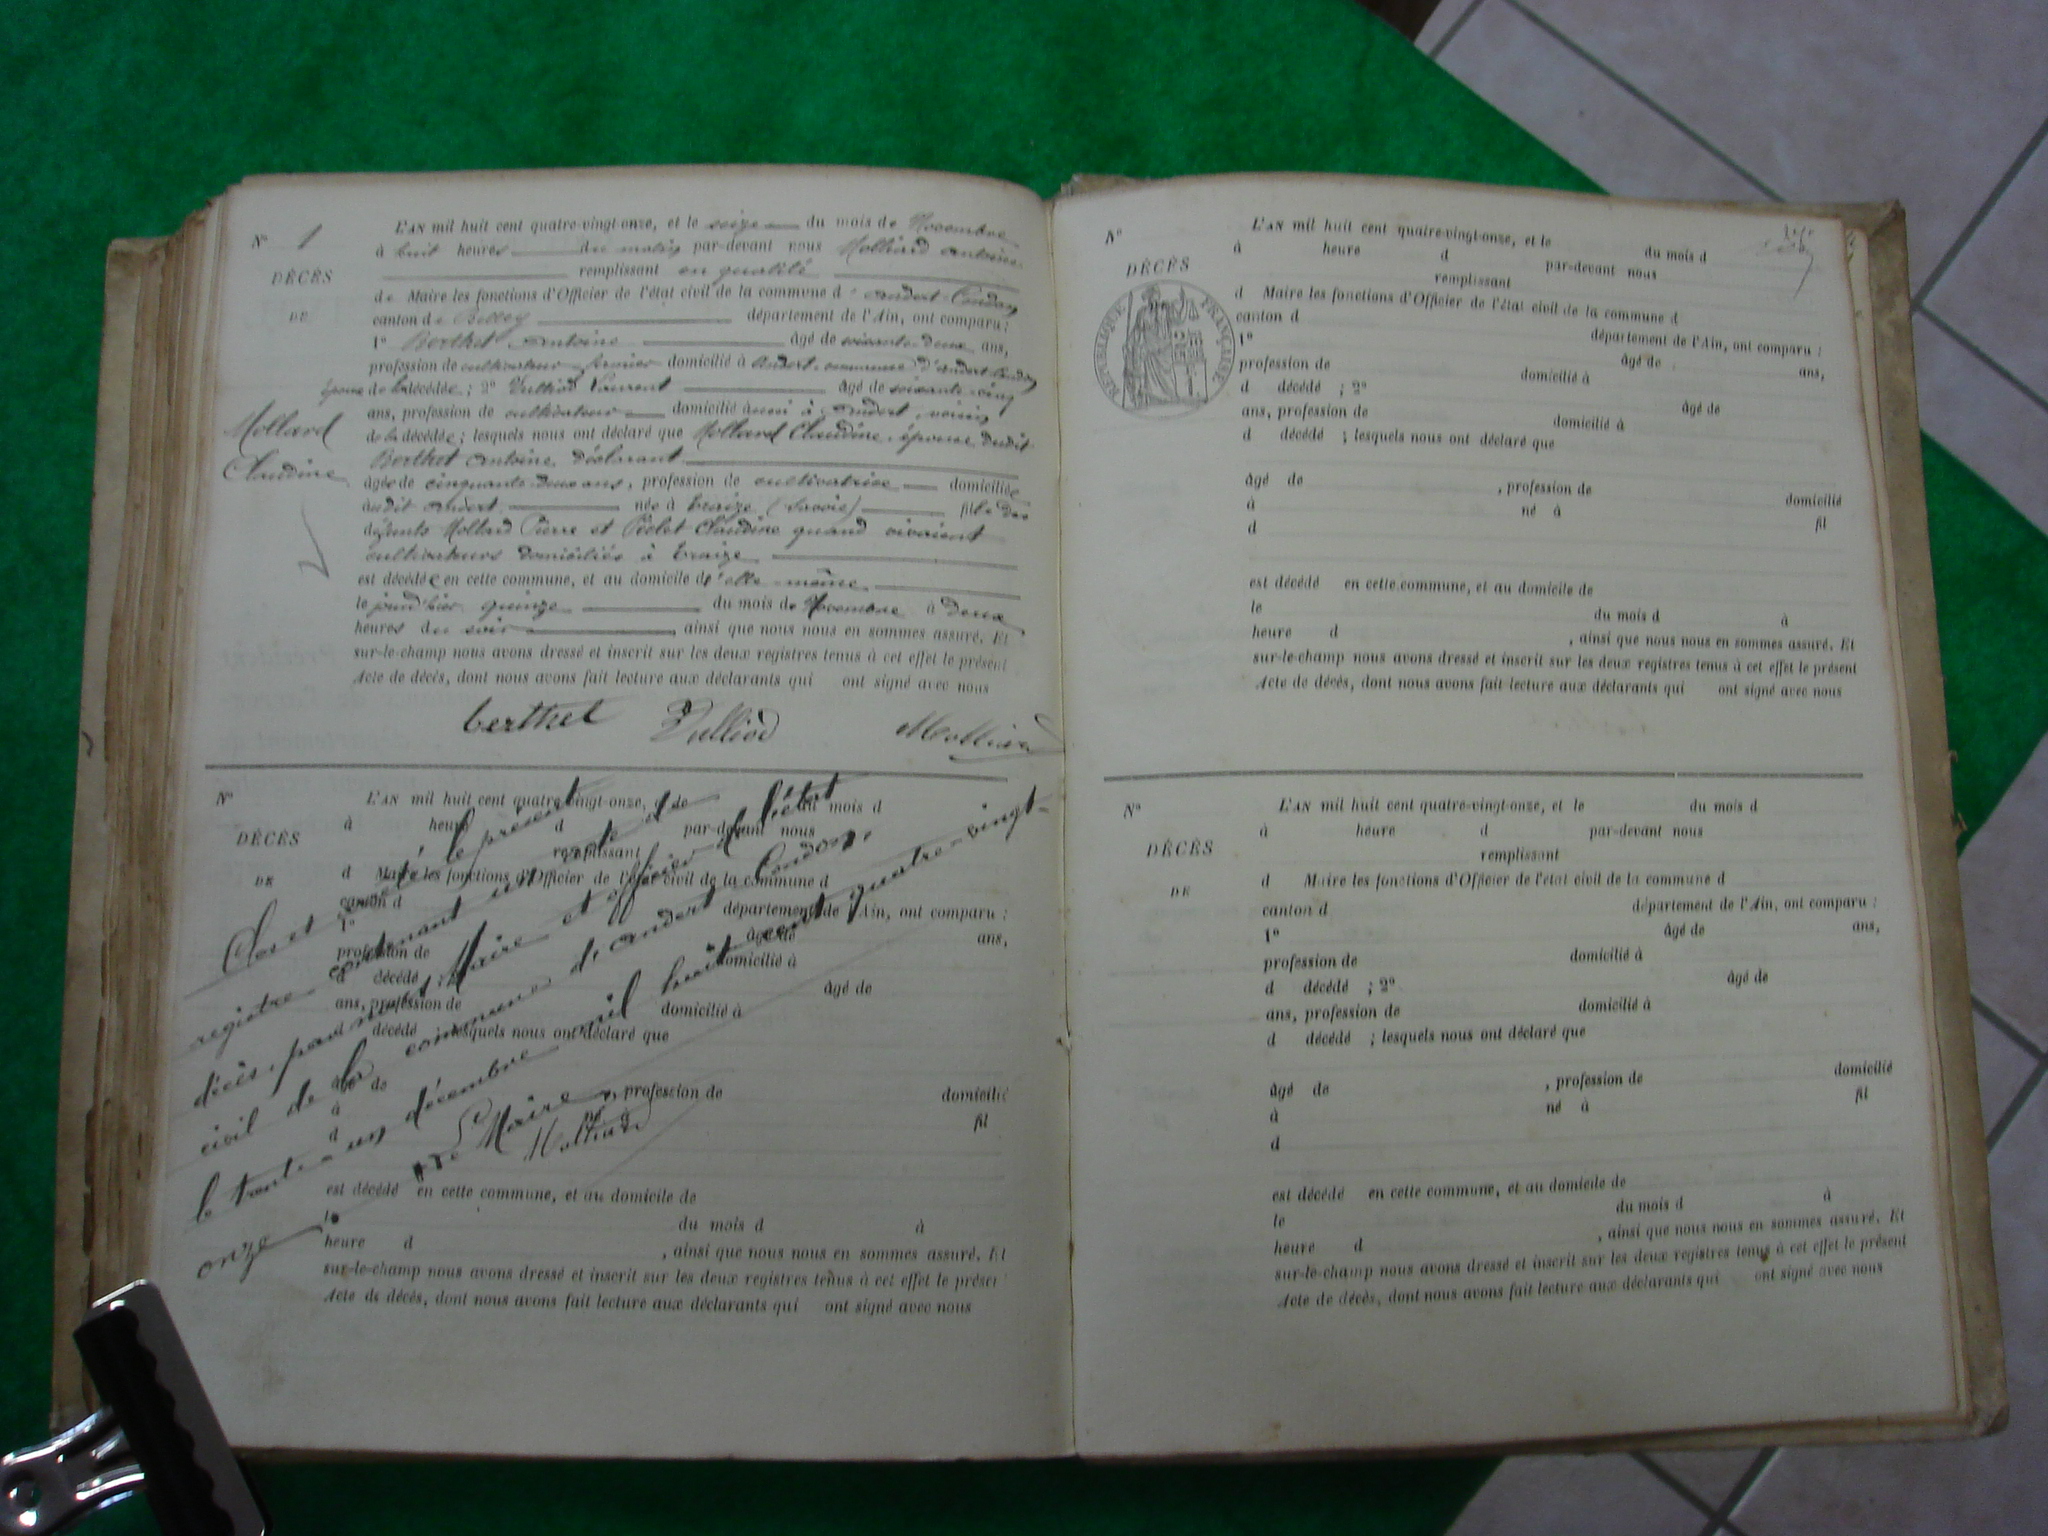 N° 1
DÉCÈS
DE
Mollard
Claudine
L'AN mil huit cent quatre-vingt-onze, et le seize du mois de Novembre
à huit heures du matin par-devant nous Molliard Antoine
remplissant en qualité
de Maire les fonctions d'Officier de l'état civil de la commune d'Andert-Condon
canton de Belley département de l'Ain, ont comparu :
1° Berthet Antoine âgé de soixante-deux ans,
profession de cultivateur fermier domicilié à Andert, commune d'Andert-Condon
époux de la décédée ; 2° Vulliod Laurent âgé de soixante-cinq
ans, profession de cultivateur domicilié aussi à Andert, voisin
de la décédée ; lesquels nous ont déclaré que Mollard Claudine, épouse dudit
Berthet Antoine, déclarant
âgée de cinquante-deux ans, profession de cultivatrice domiciliée
audit Andert née à Traize (Savoie) fille des
défunts Mollard Pierre et Péclet Claudine quand vivaient
cultivateurs domiciliés à Traize
est décédée en cette commune, et au domicile d'elle-même
le jourd'hier quinze du mois de Novembre à deux
heures du soir ainsi que nous nous en sommes assuré. Et
sur-le-champ nous avons dressé et inscrit sur les deux registres tenus à cet effet le présent
Acte de décès, dont nous avons fait lecture aux déclarants qui ont signé avec nous
berthet Vulliod Molliard
N°
DÉCÈS
DE
L'AN mil huit cent quatre-vingt-onze, et le du mois d
à heure d par-devant nous
remplissant
d Maire les fonctions d'Officier de l'état civil de la commune d
canton d département de l'Ain, ont comparu :
1° âgé de ans,
profession de domicilié à
d décédé ; 2° âgé de
ans, profession de domicilié à
d décédé ; lesquels nous ont déclaré que
âgé de , profession de domicilié
à né à fil
d
est décédé en cette commune, et au domicile de
le du mois d à
heure d , ainsi que nous nous en sommes assuré. Et
sur-le-champ nous avons dressé et inscrit sur les deux registres tenus à cet effet le présent
Acte de décès, dont nous avons fait lecture aux déclarants qui ont signé avec nous
Clos et arrêté le présent
registre contenant un acte de
décès, par nous Maire et officier de l'état
civil de la commune d'Andert-Condon,
le trente-un décembre mil huit cent quatre-vingt-
onze
Le Maire,
Molliard
N°
DÉCÈS
RÉPUBLIQUE FRANÇAISE
L'AN mil huit cent quatre-vingt-onze, et le du mois d
à heure d par-devant nous
remplissant
d Maire les fonctions d'Officier de l'état civil de la commune d
canton d département de l'Ain, ont comparu :
1° âgé de ans,
profession de domicilié à
d décédé ; 2° âgé de
ans, profession de domicilié à
d décédé ; lesquels nous ont déclaré que
âgé de , profession de domicilié
à né à fil
d
est décédé en cette commune, et au domicile de
le du mois d à
heure d , ainsi que nous nous en sommes assuré. Et
sur-le-champ nous avons dressé et inscrit sur les deux registres tenus à cet effet le présent
Acte de décès, dont nous avons fait lecture aux déclarants qui ont signé avec nous
N°
DÉCÈS
DE
L'AN mil huit cent quatre-vingt-onze, et le du mois d
à heure d par-devant nous
remplissant
d Maire les fonctions d'Officier de l'état civil de la commune d
canton d département de l'Ain, ont comparu :
1° âgé de ans,
profession de domicilié à
d décédé ; 2° âgé de
ans, profession de domicilié à
d décédé ; lesquels nous ont déclaré que
âgé de , profession de domicilié
à né à fil
d
est décédé en cette commune, et au domicile de
le du mois d à
heure d , ainsi que nous nous en sommes assuré. Et
sur-le-champ nous avons dressé et inscrit sur les deux registres tenus à cet effet le présent
Acte de décès, dont nous avons fait lecture aux déclarants qui ont signé avec nous